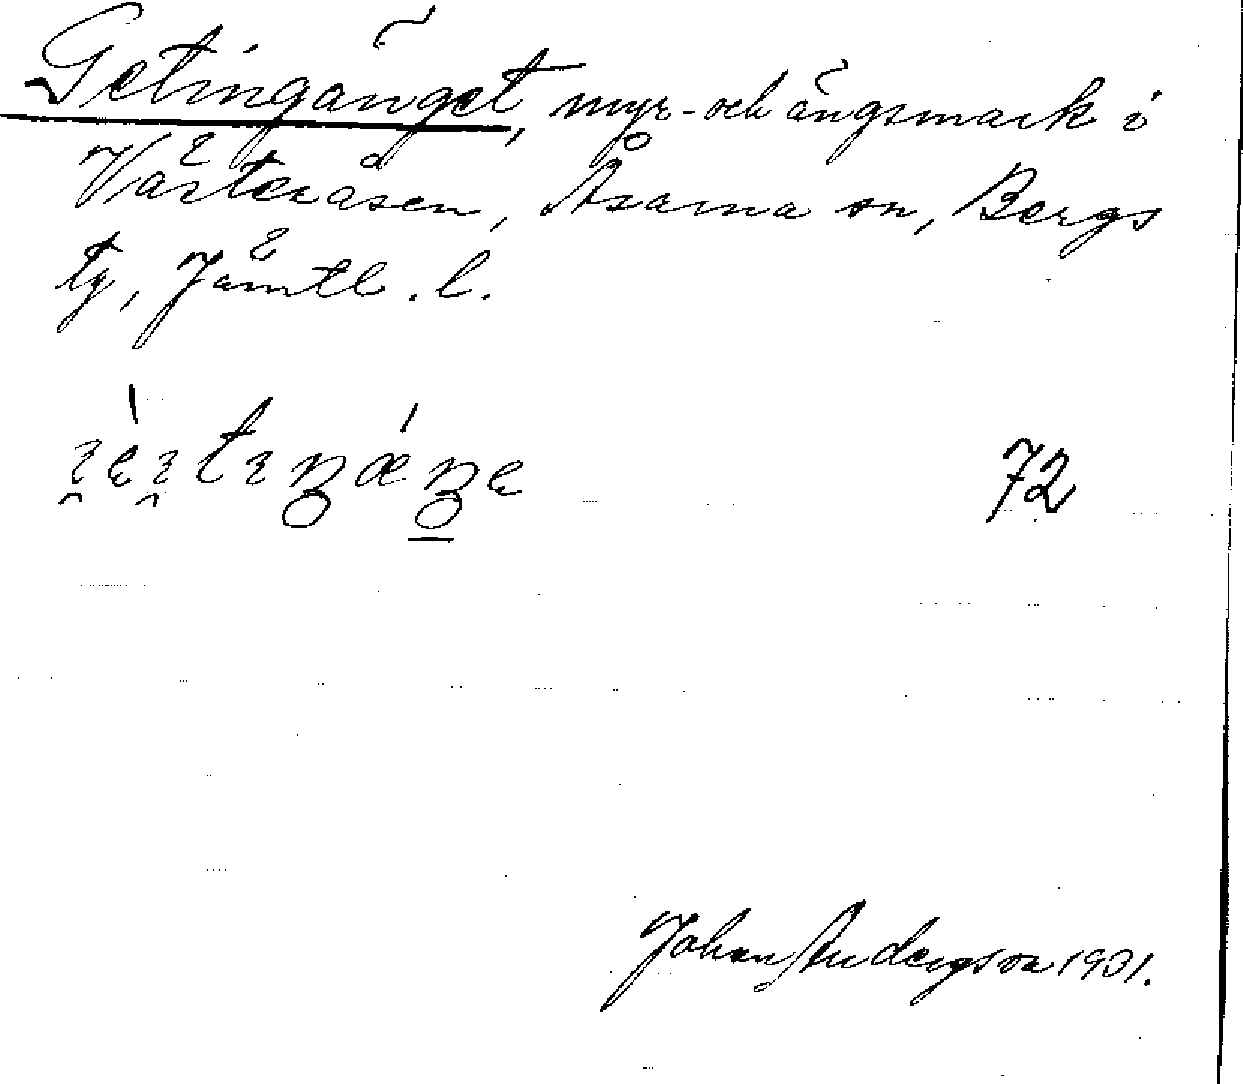 Getingänget, myr- och ängsmark i
Västeråsen, Åsarna sn, Bergs
tg, Jämtl. l.
72
Johan Andergson 1901.